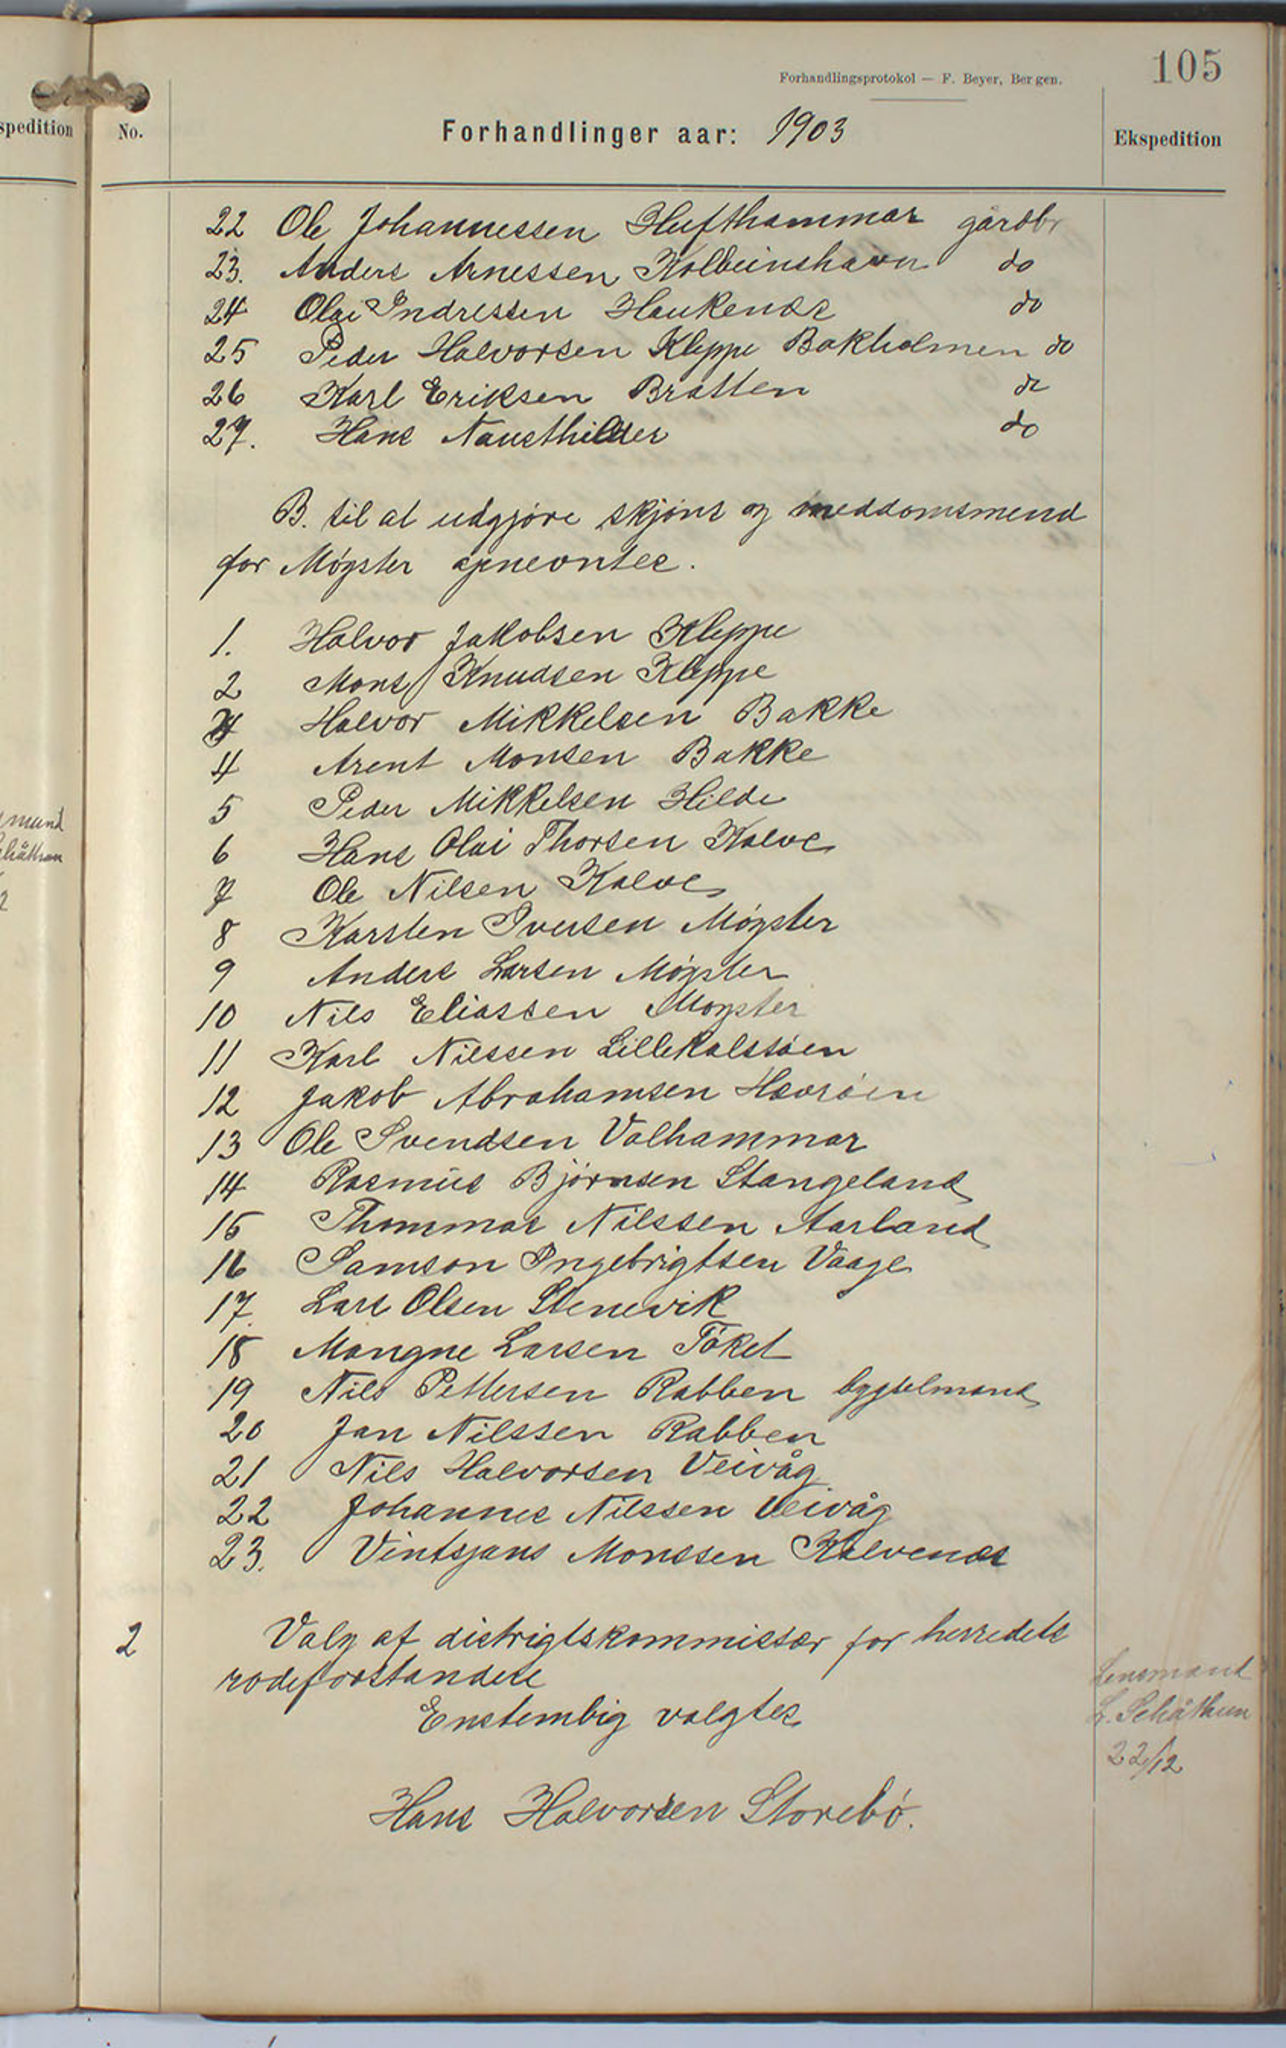 105
Forhandlingsprotokol — F. Beyer, Bergen.
spedition
No.
Forhandlinger aar: 1903
Ekspedition
22 Ole Johannessen Hufthammar gårdbr
23. Anders Arnessen Kolbeinshavn do
24 Olai Indressen Haukenæs do
25 Peder Halvorsen Kleppe Bakholmen do
26 Karl Eriksen Bratten do
27. Hans Nausthilder do
B. til at udgjøre skjøns og meddomsmend
for Møgster
1. Halvor Jakobsen Kleppe
2 Mons Knudsen Kleppe
3 Halvor Mikkelsen Bakke
4 Arent Monsen Bakke
5 Peder Mikkelsen Hilde
6 Hans Olai Thorsen Kalve
7 Ole Nilsen Kalve
8 Karsten Iversen Møgster
9 Anders Larsen Møgster
10 Nils Eliassen Møgster
11 Karl Nilssen Lillekalsøen
12 Jakob Abrahamsen Havrøen
13 Ole Svendsen Valhammar
14 Rasmus Bjørnsen Stangeland
15 Thommas Nilssen Aarland
16 Samson Ingebrigtsen Vaage
17. Lars Olsen Stenevik
18 Mangne Larsen Tøket
19 Nils Pettersen Rabben bygselmand
20 Jan Nilssen Rabben
21 Nils Halvorsen Veivåg
22 Johannes Nilssen Veivåg
23. Vintsjans Monssen Kalvenæs
2 Valg af distrigtskommissær for herredets
rodeforstandere
Enstembig valgtes
Hans Halvorsen Storebø.
Lensmand
L. Schåthun
22/12
mund
chåthun
2